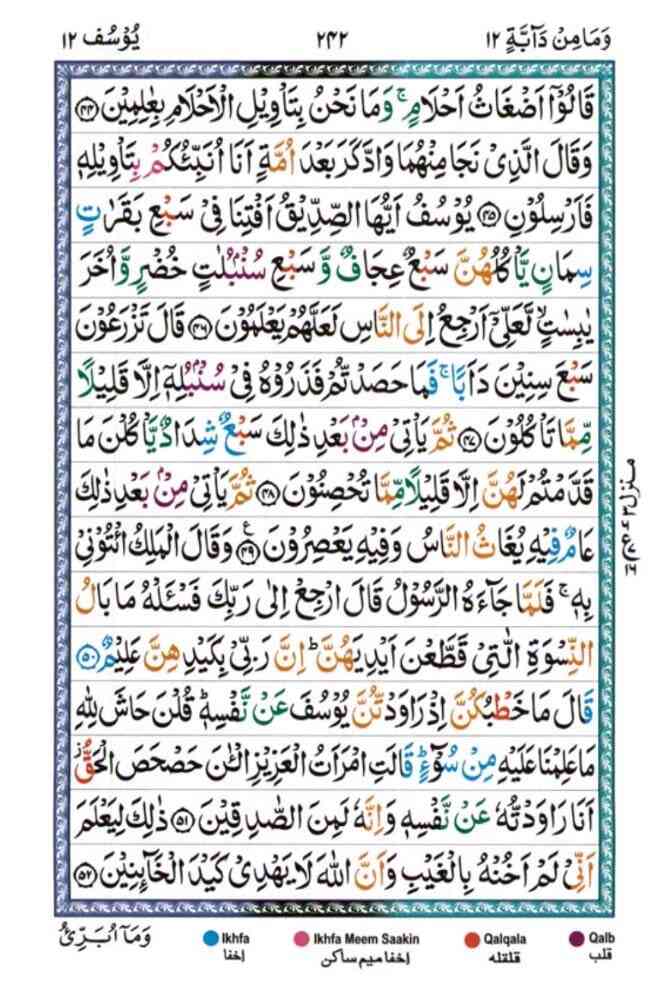 وَمَا مِنْ دَآبَّةٍ ١٢
٢٤٢
يُوْسُف ١٢
قَالُوْٓا اَضْغَاثُ اَحْلَامٍ ۚ وَمَا نَحْنُ بِتَاْوِيْلِ الْاَحْلَامِ بِعٰلِمِيْنَ ﴿۴۴﴾
وَقَالَ الَّذِيْ نَجَا مِنْهُمَا وَادَّكَرَ بَعْدَ اُمَّةٍ اَنَا اُنَبِّئُكُمْ بِتَاْوِيْلِهٖ
فَاَرْسِلُوْنِ ﴿۴۵﴾ يُوْسُفُ اَيُّهَا الصِّدِّيْقُ اَفْتِنَا فِيْ سَبْعِ بَقَرٰتٍ
سِمَانٍ يَّاْكُلُهُنَّ سَبْعٌ عِجَافٌ وَّ سَبْعِ سُنْۢبُلٰتٍ خُضْرٍ وَّاُخَرَ
يٰبِسٰتٍ ۙ لَّعَلِّيْٓ اَرْجِعُ اِلَى النَّاسِ لَعَلَّهُمْ يَعْلَمُوْنَ ﴿۴۶﴾ قَالَ تَزْرَعُوْنَ
سَبْعَ سِنِيْنَ دَاَبًا ۚ فَمَا حَصَدْتُّمْ فَذَرُوْهُ فِيْ سُنْۢبُلِهٖٓ اِلَّا قَلِيْلًا
مِّمَّا تَاْكُلُوْنَ ﴿۴۷﴾ ثُمَّ يَاْتِيْ مِنْۢ بَعْدِ ذٰلِكَ سَبْعٌ شِدَادٌ يَّاْكُلْنَ مَا
قَدَّمْتُمْ لَهُنَّ اِلَّا قَلِيْلًا مِّمَّا تُحْصِنُوْنَ ﴿۴۸﴾ ثُمَّ يَاْتِيْ مِنْۢ بَعْدِ ذٰلِكَ
عَامٌ فِيْهِ يُغَاثُ النَّاسُ وَفِيْهِ يَعْصِرُوْنَ ﴿۴۹﴾ ع وَقَالَ الْمَلِكُ ائْتُوْنِيْ
بِهٖ ۚ فَلَمَّا جَآءَهُ الرَّسُوْلُ قَالَ ارْجِعْ اِلٰى رَبِّكَ فَسْـَٔلْهُ مَا بَالُ
النِّسْوَةِ الّٰتِيْ قَطَّعْنَ اَيْدِيَهُنَّ ؕ اِنَّ رَبِّيْ بِكَيْدِهِنَّ عَلِيْمٌ ﴿۵۰﴾
قَالَ مَا خَطْبُكُنَّ اِذْ رَاوَدْتُّنَّ يُوْسُفَ عَنْ نَّفْسِهٖ ؕ قُلْنَ حَاشَ لِلّٰهِ
مَا عَلِمْنَا عَلَيْهِ مِنْ سُوْٓءٍ ؕ قَالَتِ امْرَاَتُ الْعَزِيْزِ الْـٰٔنَ حَصْحَصَ الْحَقُّ ز
اَنَا رَاوَدْتُّهٗ عَنْ نَّفْسِهٖ وَاِنَّهٗ لَمِنَ الصّٰدِقِيْنَ ﴿۵۱﴾ ذٰلِكَ لِيَعْلَمَ
اَنِّيْ لَمْ اَخُنْهُ بِالْغَيْبِ وَاَنَّ اللّٰهَ لَا يَهْدِيْ كَيْدَ الْخَآئِنِيْنَ ﴿۵۲﴾
منزل ٣
وَمَآ اُبَرِّئُ
Ikhfa
اخفا
Ikhfa Meem Saakin
اخفا میم ساکن
Qalqala
قلقله
Qalb
قلب